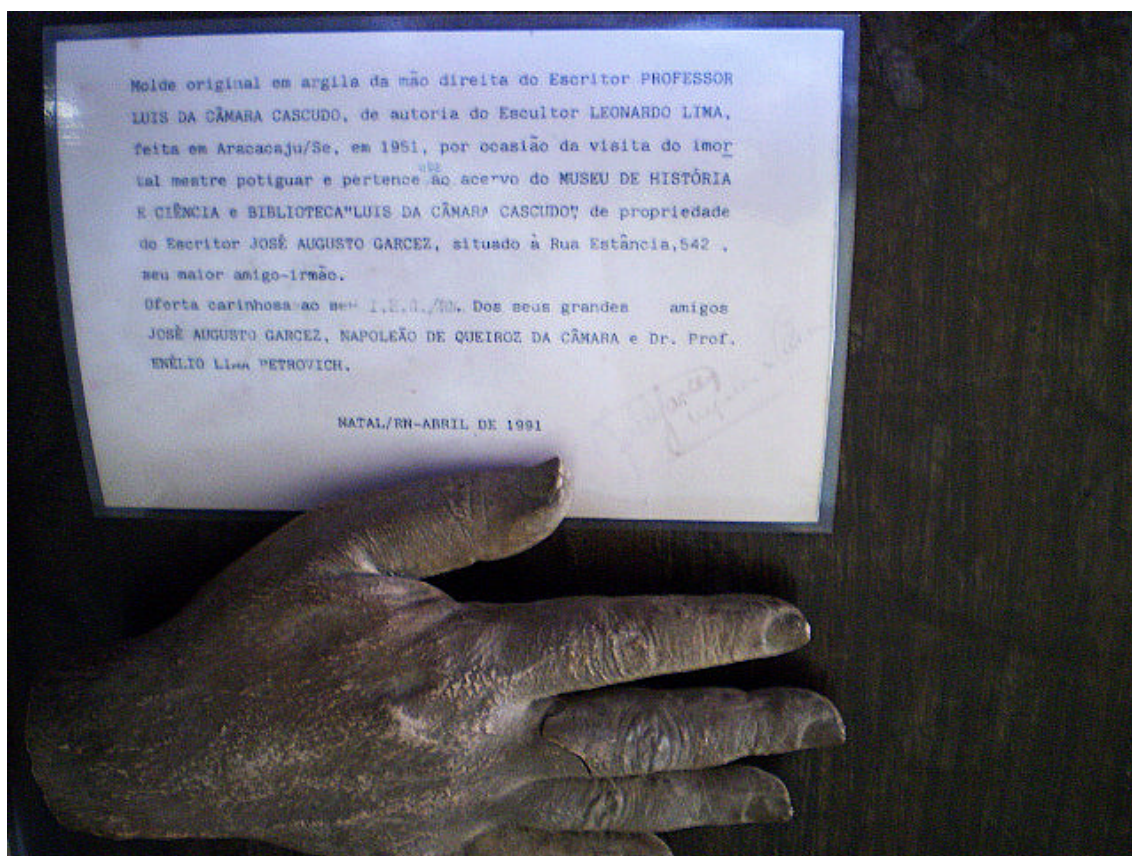 Molde original em argila da mão direita do Escritor PROFESSOR
LUIS DA CÂMARA CASCUDO, de autoria do Escultor LEONARDO LIMA,
feita em Aracacaju/Se, em 1951, por ocasião da visita do imor
tal mestre potiguar e pertence ao acervo do MUSEU DE HISTÓRIA
E CIÊNCIA e BIBLIOTECA"LUIS DA CÂMARA CASCUDO" de propriedade
do Escritor JOSÉ AUGUSTO GARCEZ, situado à Rua Estância,542 .
seu maior amigo-irmão.
Oferta carinhosa ao Dos seus grandes amigos
JOSÉ AUGUSTO GARCEZ, NAPOLEÃO DE QUEIROZ DA CÂMARA e Dr. Prof.
ENÉLIO LIMA PETROVICH.
NATAL/RN-ABRIL DE 1991